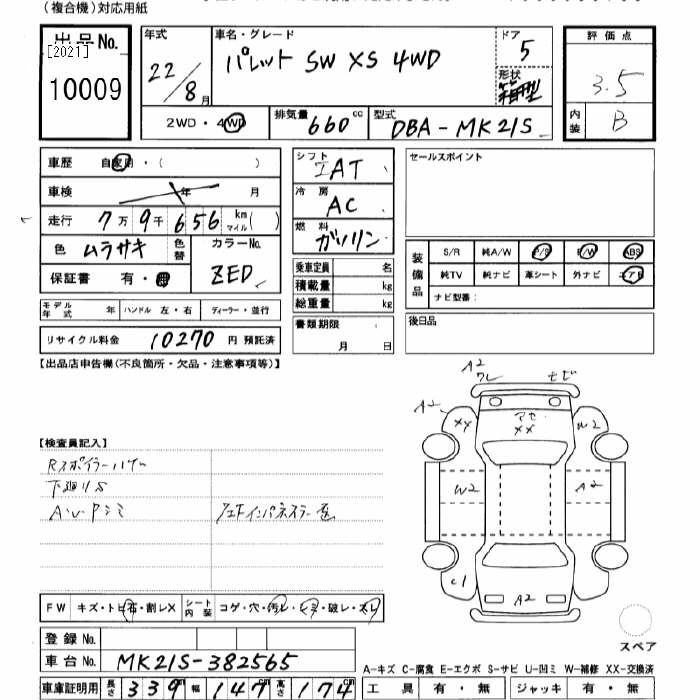 (複合機)対応用紙
出品No. [2021] 10009
年式 22/8月
車名・グレード パレット SW XS 4WD
ドア 5
形状 箱型
評価点 3.5
内装 B
2WD・4WD
排気量 660 cc
型式 DBA-MK21S
車歴 自家用・( )
車検 年 月
走行 7万9千656 km マイル( )
色 ムラサキ 色替
カラーNo. ZED
保証書 有・無
モデル年式 年 ハンドル 左・右 ディーラー・並行
リサイクル料金 10270 円 預託済
シフト IAT
冷房 AC
燃料 ガソリン
乗車定員 名
積載量 kg
総重量 kg
書類期限 月 日
セールスポイント
装備品 S/R 純A/W P/S P/W ABS
純TV 純ナビ 革シート 外ナビ エアB
ナビ型番:
後日品
【出品店申告欄(不良箇所・欠品・注意事項等)】
【検査員記入】
Rスポイラー
下廻りS
A・W
A2
A2
XX
XX
W2
W2
A2
C1
A2
スペア
FW キズ・トビ石・割レX
シート内装 コゲ・穴・汚レ・シミ・破レ・スレ
登録No.
車台No. MK21S-382565
車庫証明用 長さ 339cm 幅 147cm 高さ 174cm
A-キズ C-腐食 E-エクボ S-サビ U-凹ミ W-補修 XX-交換済
工具 有・無 ジャッキ 有・無